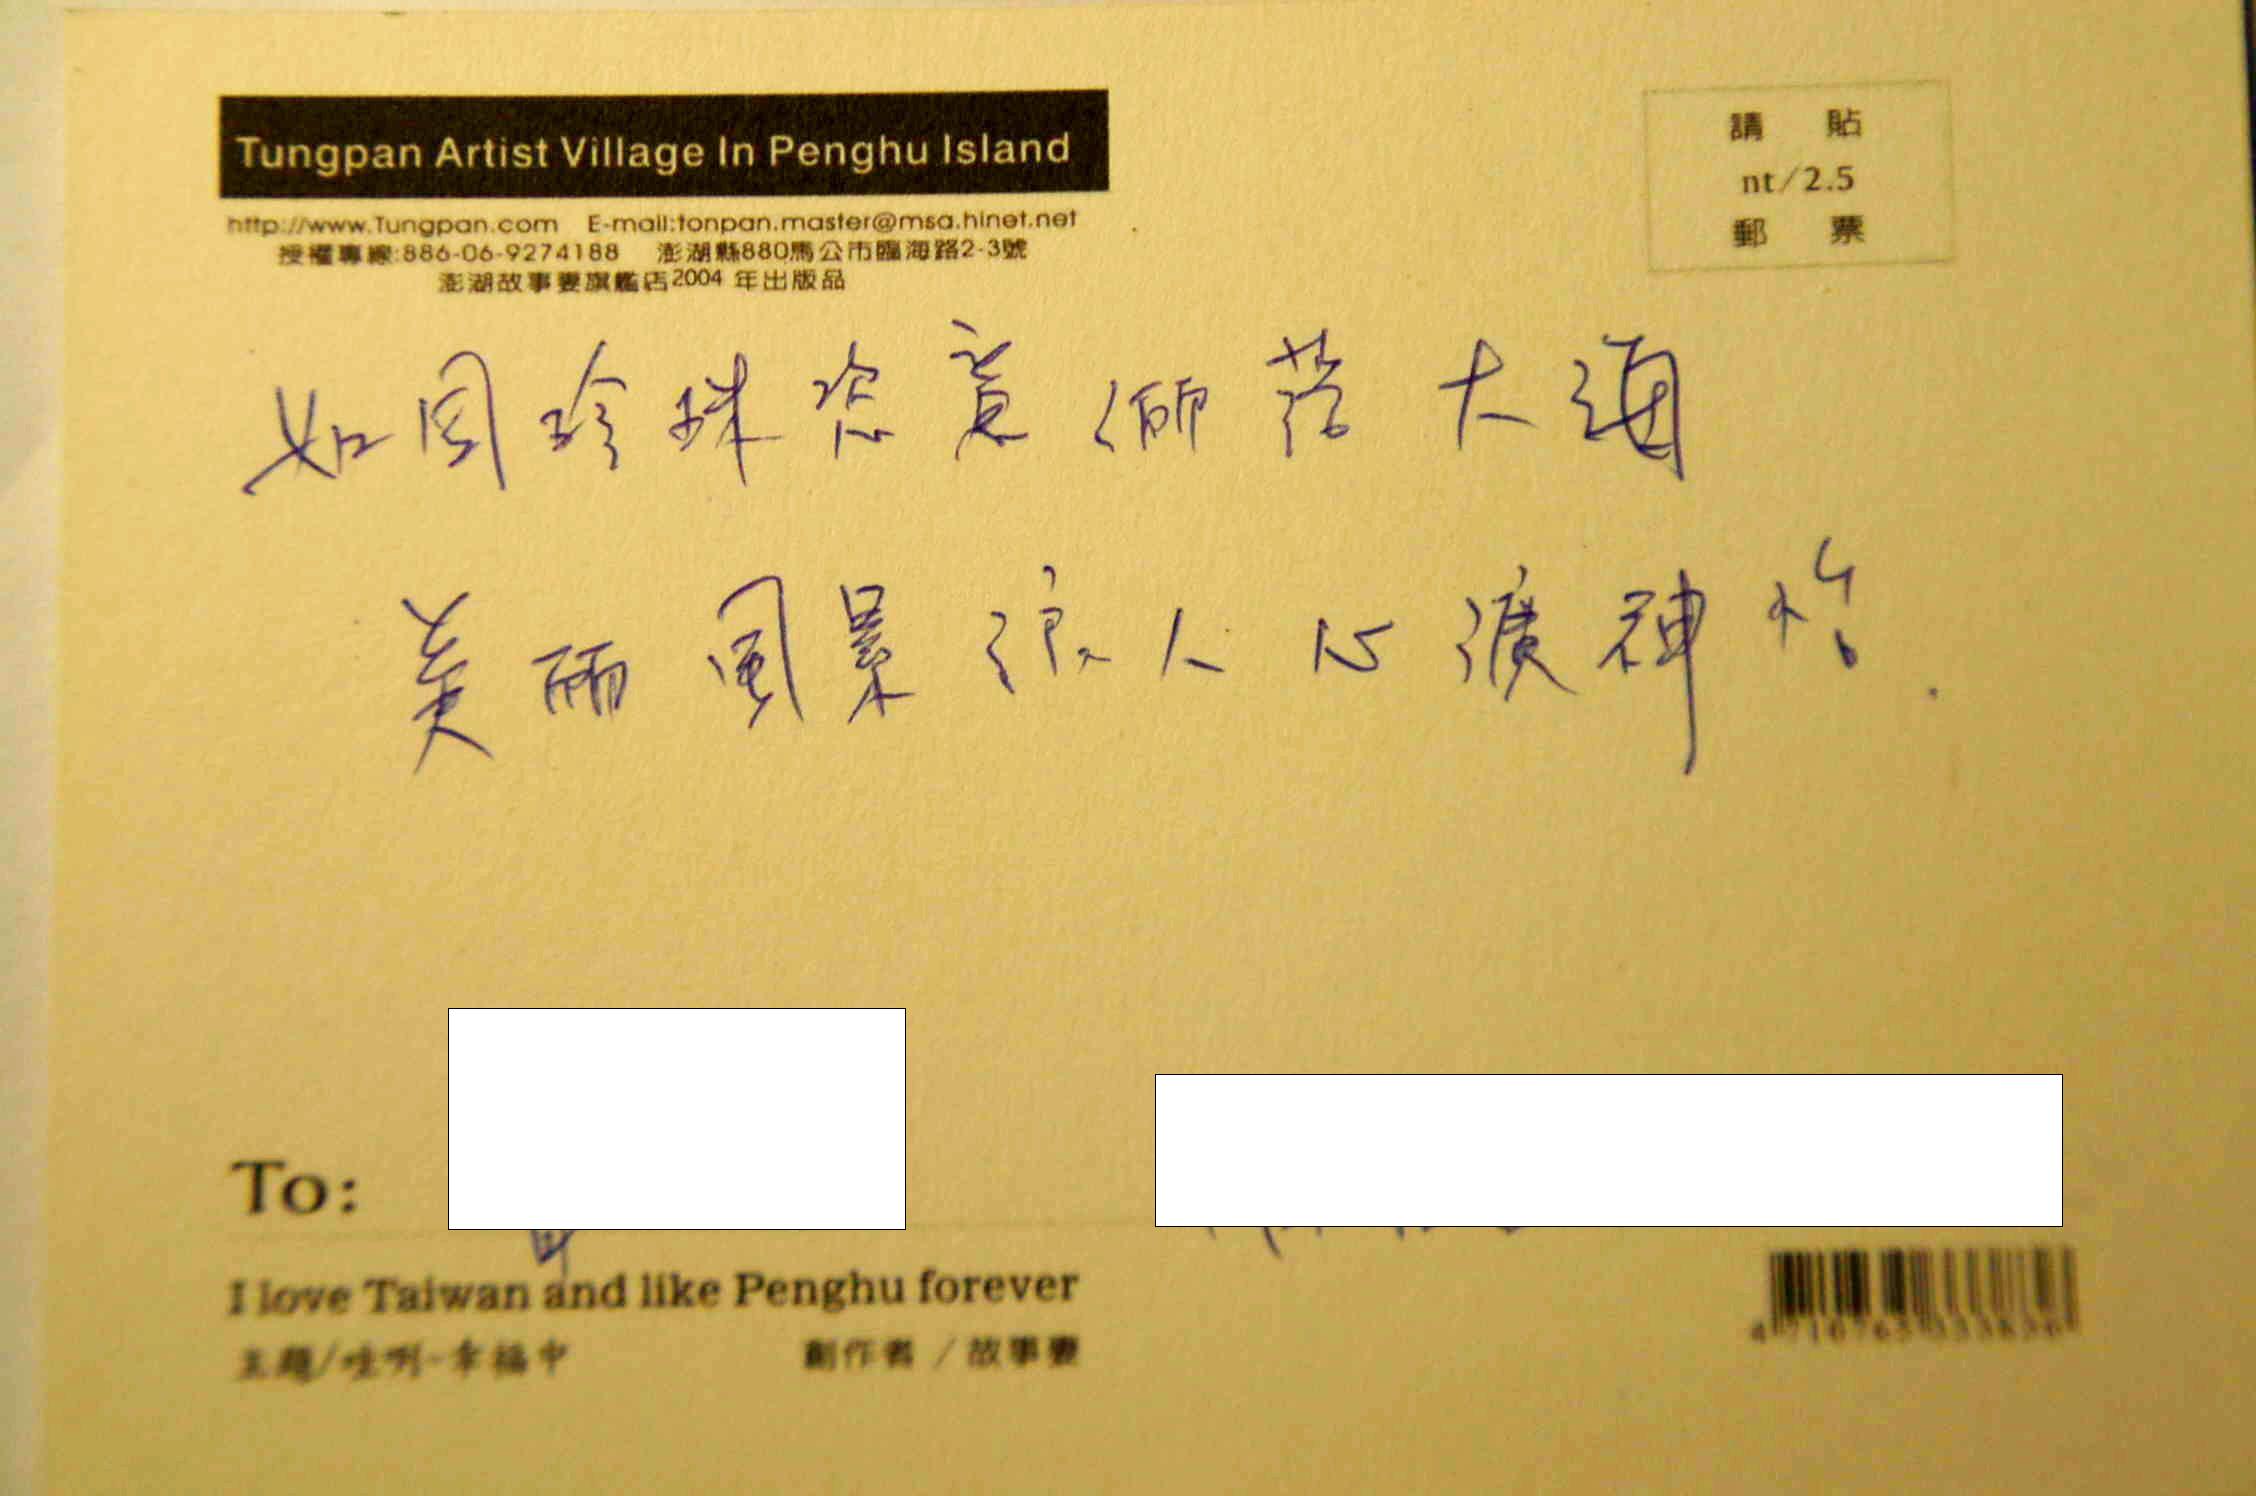 Tungpan Artist Village In Penghu Island
http://www.Tungpan.com E-mail:tonpan.master@msa.hinet.net
授權專線:886-06-9274188 澎湖縣880馬公市臨海路2-3號
澎湖故事妻旗艦店2004 年出版品
請 貼
nt/2.5
郵 票
如同珍珠恣意 落大海
美麗風景讓人心 神怡.
To:
I love Taiwan and like Penghu forever
主題/哇咧-幸福中 創作者 / 故事妻